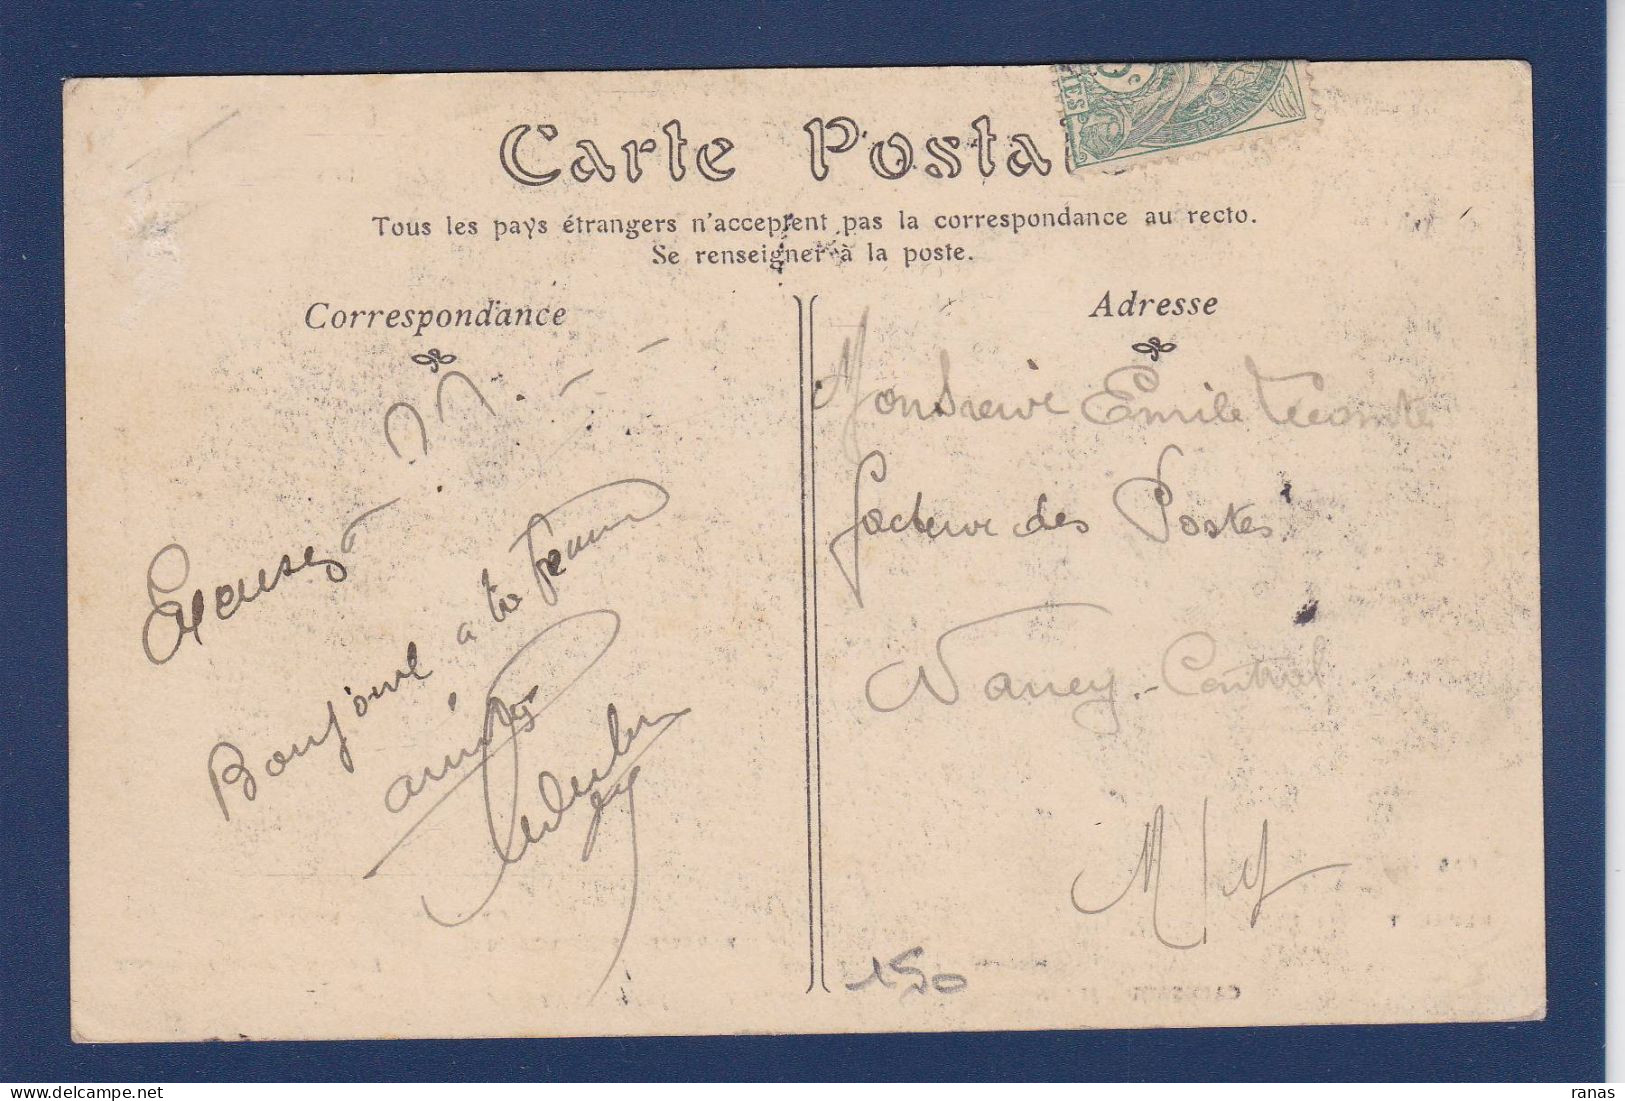 Carte Posta
Tous les pays étrangers n'acceptent pas la correspondance au recto.
Se renseigner à la poste.
Correspondance
Excusez
Bonjour a ta femme
amitiés
Adresse
Monsieur Emile Lecomte
facteur des Postes
Nancy-Central
M/M
150
ranas